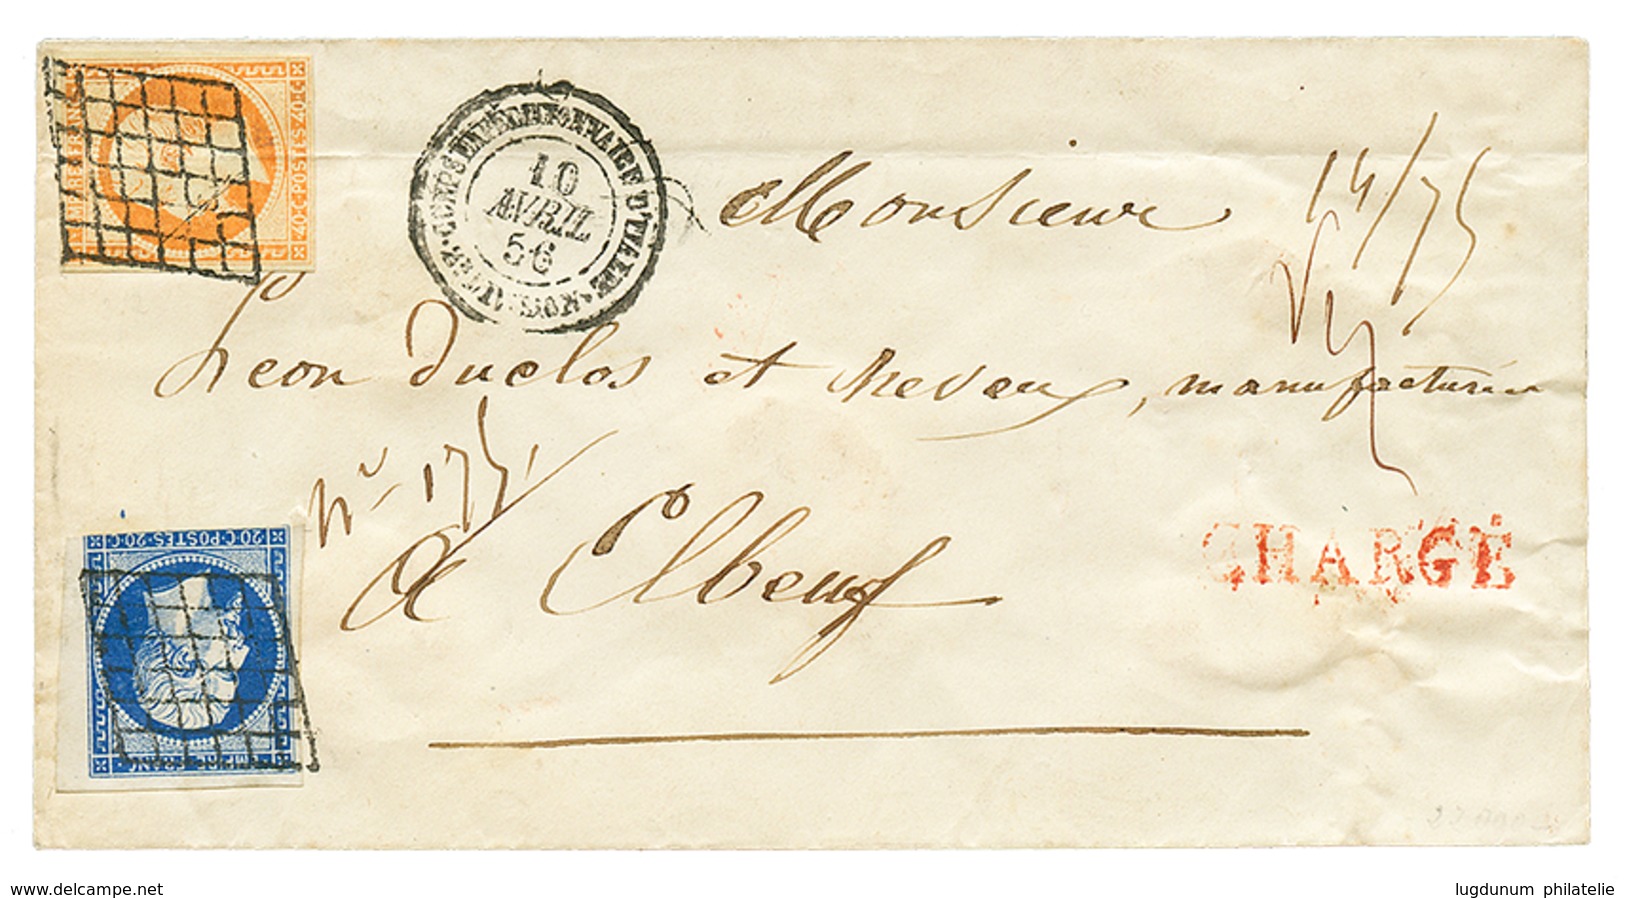 EMPIRE FRANC
40·C·POSTES·40·C
CORPS EXPÉDITIONNAIRE D'ITALIE
10
AVRIL
56
Monsieur
14/75
Leon Duclos et Neveux, manufacturier
N° 175
à Elbeuf
CHARGÉ
20·C·POSTES·20·C
EMPIRE FRANC
www.delcampe.net
lugdunum philatelie